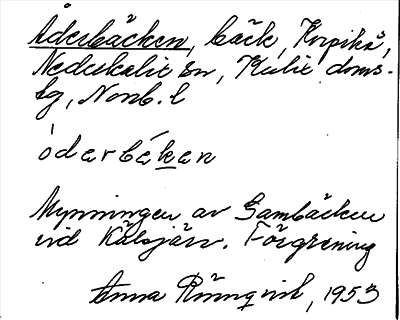 Åderbäcken, bäck, Korpikå,
Nederkalix sn, Kalix doms-
lg, Norrb. l
óderbäken
Mynningen av Gambäcken
vid Kälsjärv. Förgrening
Anna Rönnqvist, 1953